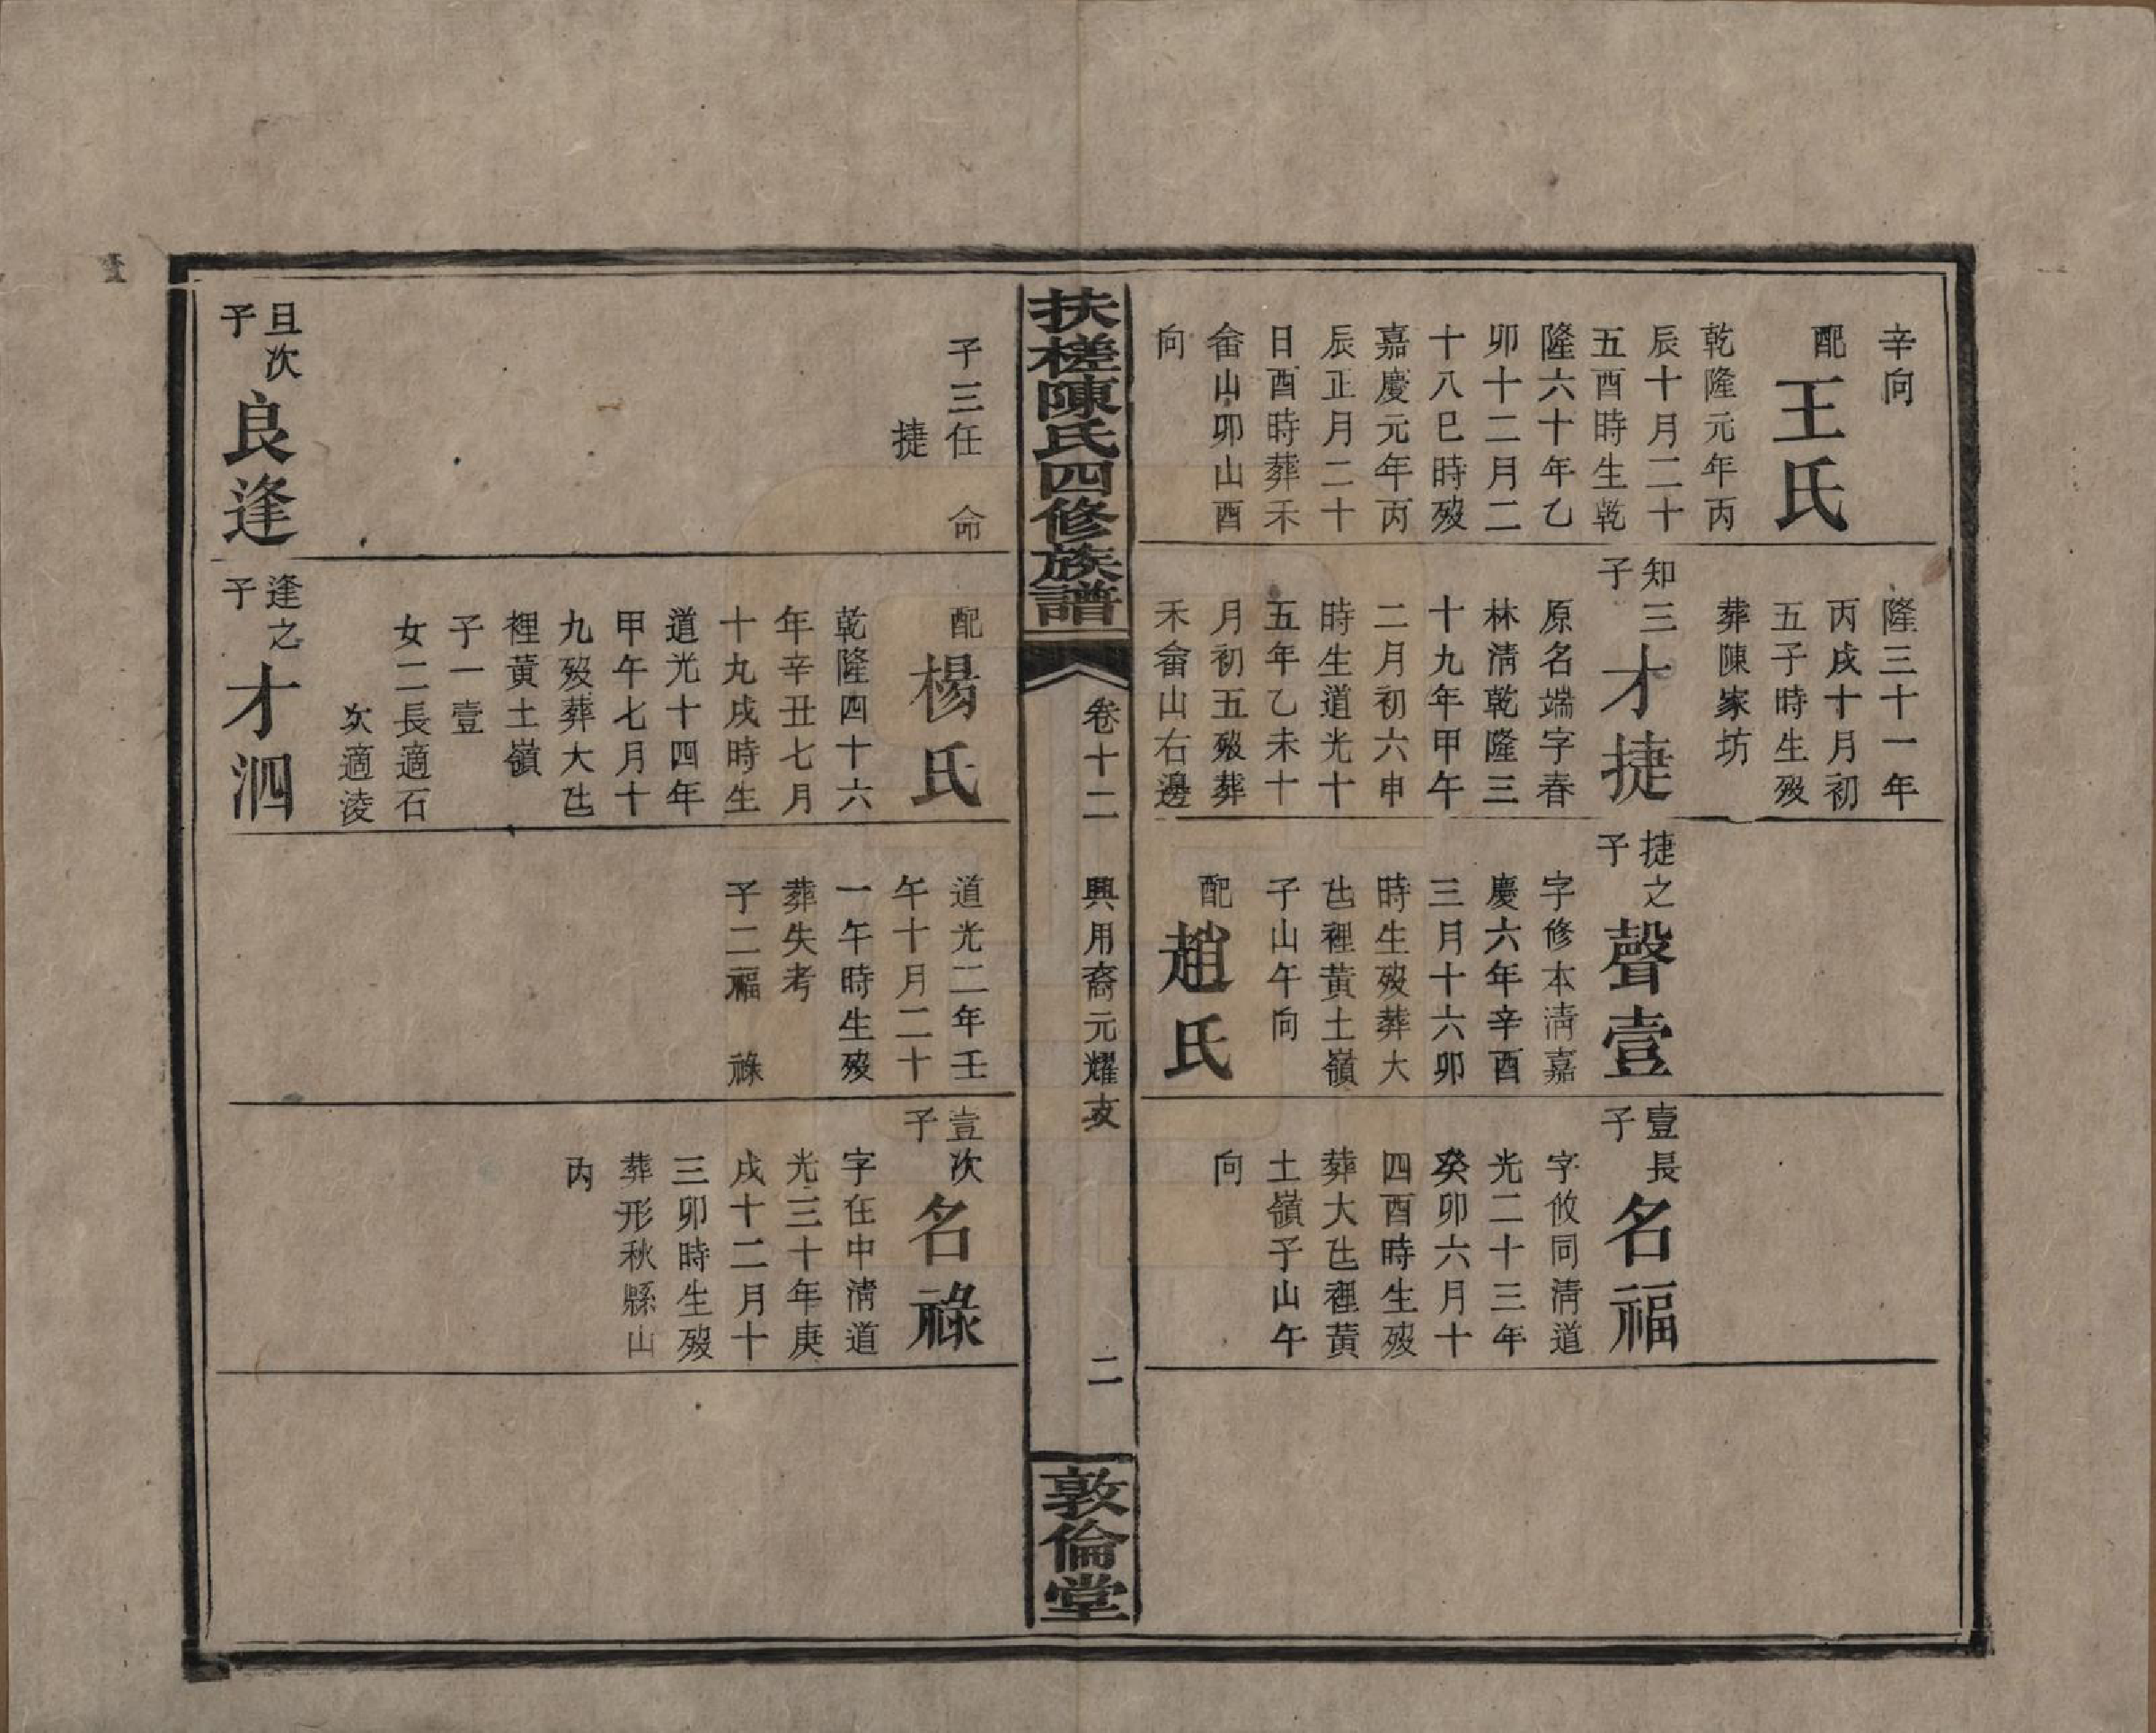 辛向
配
王氏
乾隆元年丙
辰十月二十
五酉時生乾
隆六十年乙
卯十二月二
十八巳時歿
嘉慶元年丙
辰正月二十
日酉時葬禾
畲山卯山酉
向
隆三十一年
丙戌十月初
五子時生歿
葬陳家坊
知三
子
才捷
原名端字春
林淸乾隆三
十九年甲午
二月初六申
時生道光十
五年乙未十
月初五歿葬
禾畲山右邊
捷之
子
聲壹
字修本淸嘉
慶六年辛酉
三月十六卯
時生歿葬大
凼裡黃土嶺
子山午向
配
趙氏
壹長
子
名福
字攸同淸道
光二十三年
癸卯六月十
四酉時生歿
葬大凼裡黃
土嶺子山午
向
扶槎陳氏四修族譜
卷十二
興用裔元耀支
二
敦倫堂
子三任 命
捷
且次
子
良逢
配
楊氏
乾隆四十六
年辛丑七月
十九戌時生
道光十四年
甲午七月十
九歿葬大凼
裡黃土嶺
子一壹
女二長適石
次適淩
逢之
子
才泗
道光二年壬
午十月二十
一午時生歿
葬失考
子二福 祿
壹次
子
名祿
字在中淸道
光三十年庚
戌十二月十
三卯時生歿
葬形秋縣山
內
壹